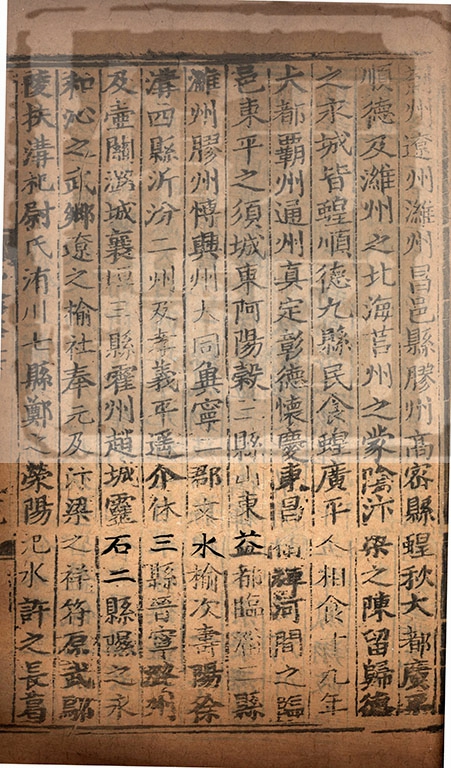 州遼州濰州昌邑縣膠州高密縣蝗秋大都廣平
順德及濰州之北海莒州之蒙陰汴梁之陳留歸德
之永城皆蝗順德九縣民食蝗廣平人相食十九年
大都霸州通州真定彰德懷慶東昌衛輝河間之臨
邑東平之須城東阿陽榖三縣山東益都臨淄二縣
濰州膠州愽興州大同冀寧二郡文水榆次壽陽徐
溝西縣沂汾二州及孝義平遥介休三縣晉寧潞州
及壺關潞城襄垣三縣霍州趙城靈石二縣隰之永
和沁之武鄉遼之榆社奉元及汴梁之祥符原武鄢
陵扶溝杞尉氏洧川七縣鄭之滎陽汜水許之長葛